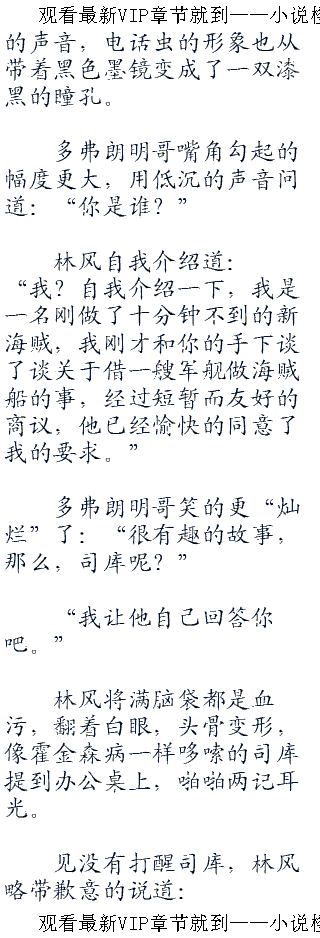 观看最新VIP章节就到——小说检
的声音，电话虫的形象也从
带着黑色墨镜变成了一双漆
黑的瞳孔。
多弗朗明哥嘴角勾起的
幅度更大，用低沉的声音问
道：“你是谁？”
林风自我介绍道：
“我？自我介绍一下，我是
一名刚做了十分钟不到的新
海贼，我刚才和你的手下谈
了谈关于借一艘军舰做海贼
船的事，经过短暂而友好的
商议，他已经愉快的同意了
我的要求。”
多弗朗明哥笑的更“灿
烂”了：“很有趣的故事，
那么，司库呢？”
“我让他自己回答你
吧。”
林风将满脑袋都是血
污，翻着白眼，头骨变形，
像霍金森病一样哆嗦的司库
提到办公桌上，啪啪两记耳
光。
见没有打醒司库，林风
略带歉意的说道：
观看最新VIP章节就到——小说检